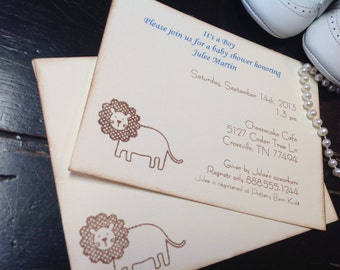 It's a Boy
Please join us for a baby shower honoring
Julee Martin
Saturday, September 14th, 2013
1-3 pm
Cheesecake Cafe
5127 Cedar Tree Ln
Crosville TN 77494
Given by Julee's coworkers
Regrets only 888.555.1244
Julee is registered at Pottery Barn Kids